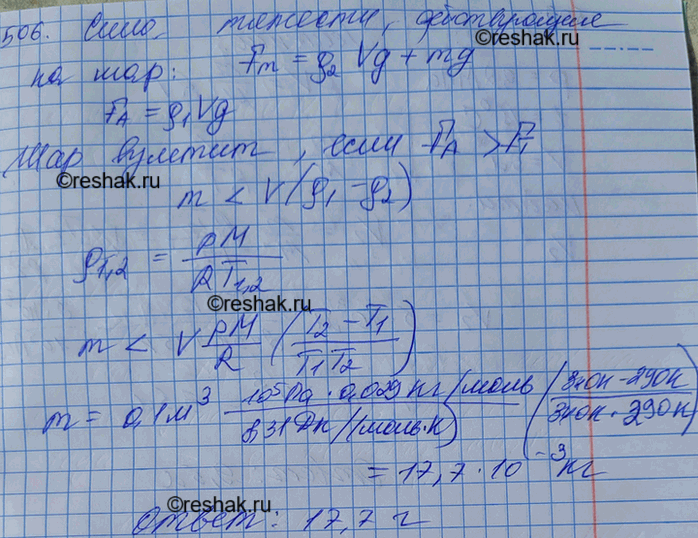 506. Сила тяжести, действующая
на шар: Fт = ρ₂ Vg + mg
F_A = ρ₁Vg
Шар взлетит, если F_A > F₁
©reshak.ru
m < V(ρ₁ - ρ₂)
ρ₁,₂ = pM / RT₁,₂
©reshak.ru
m < V pM/R (T₂ - T₁ / T₁T₂)
m = 0,1м³ 10⁵Па · 0,029 кг/моль / 8,31 Дж/(моль·К) (340К - 290К / 340К · 290К)
= 17,7 · 10⁻³ кг
©reshak.ru
Ответ: 17,7 г